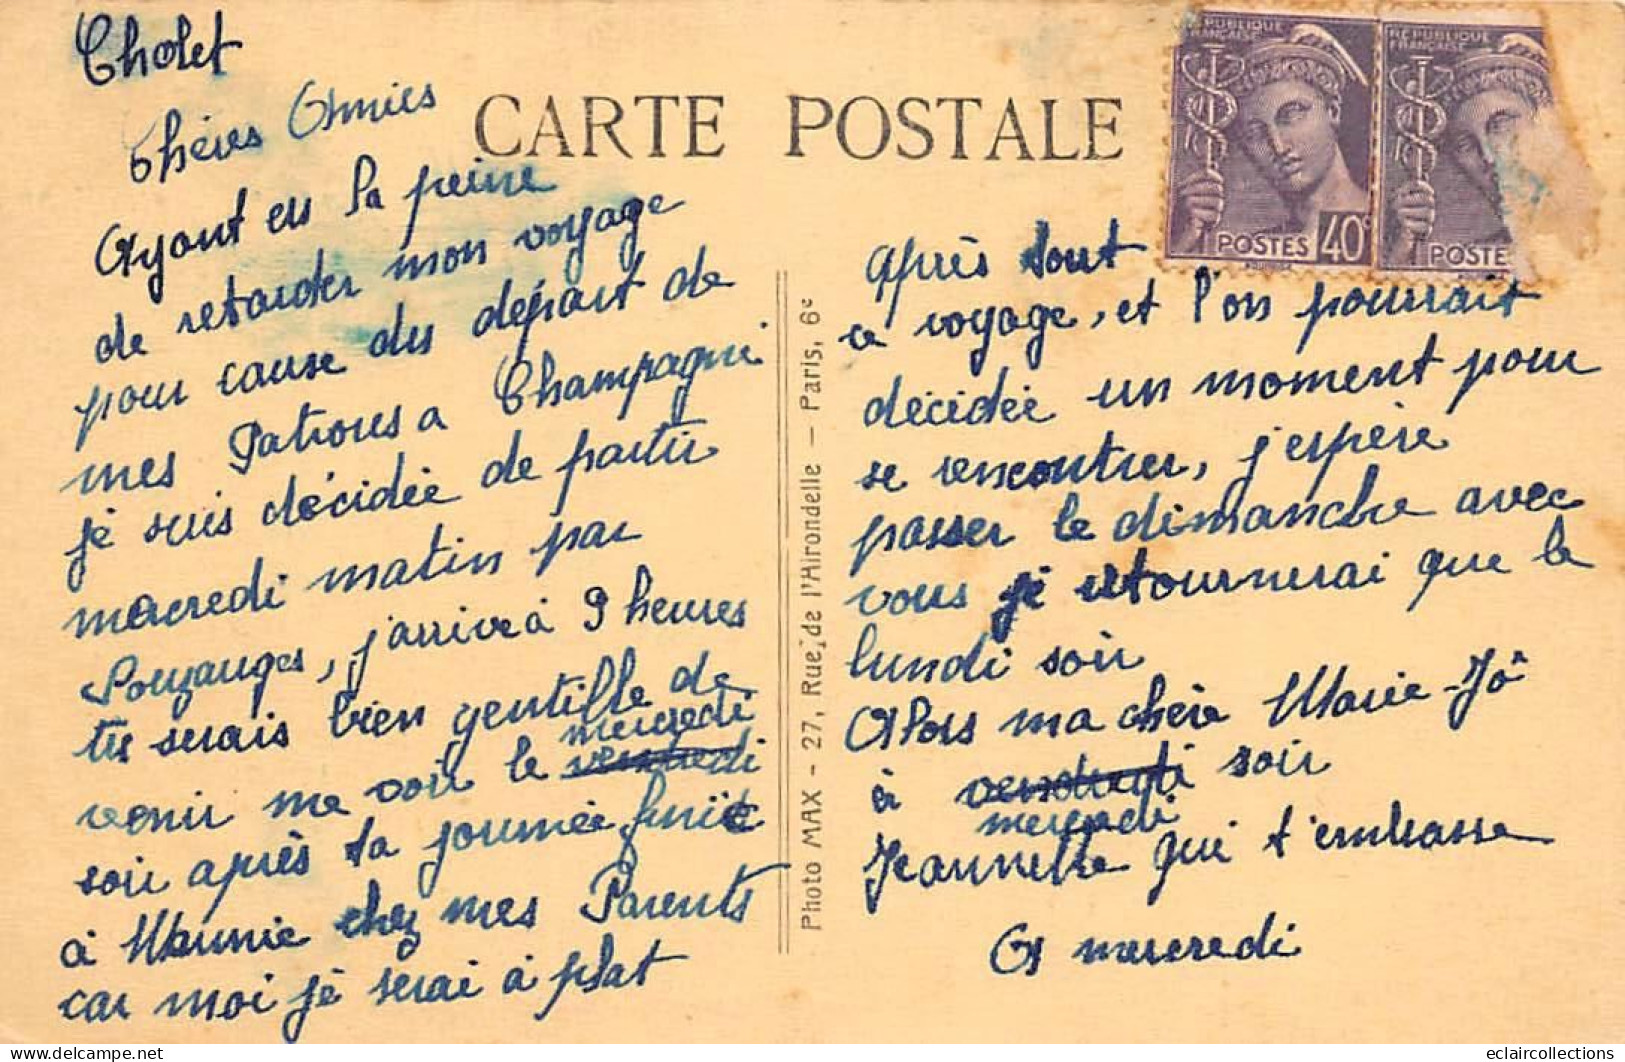 Cholet
Chères Amies
CARTE POSTALE
REPUBLIQUE
FRANÇAISE
POSTES 40c
REPUBLIQUE
FRANÇAISE
POSTE
Ayant eu la peine
de retarder mon voyage
pour cause du départ de
mes Patrons a Champagné
je suis décidée de partir
macredi matin par
Pouzauges, j'arrive à 9 heures
tu serais bien gentille de
venir me voir le mercredi
vendredi
soir après ta journée finie
à chez mes Parents
car moi je serai à plat
Photo MAX - 27, Rue de l'Hirondelle - Paris, 6e
après tout
ce voyage, et l'on pourrait
décidée un moment pour
se rencontrer, j'espère
passer le dimanche avec
vous je retournerai que le
lundi soir
Alors ma chère Marie-Jô
à vendredi soir
mercredi
Jeannette qui t'embrasse
A mercredi
eclaircollections